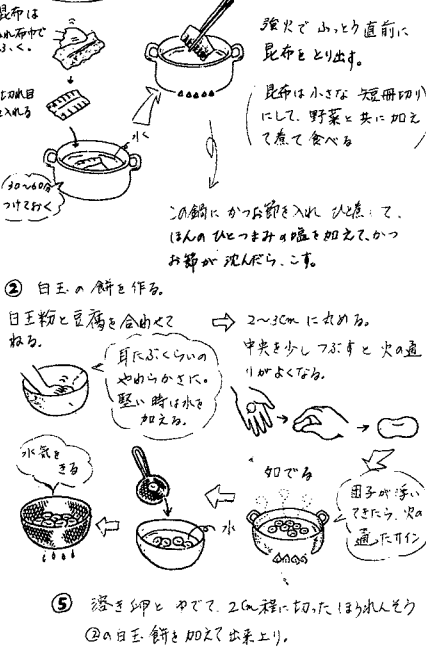 昆布は
れ布巾で
ふく。
切れ目
を入れる
水
30〜60分
つけておく
強火で ふっとう直前に
昆布を とり出す。
昆布は小さな 短冊切り
にして、野菜と共に加え
て煮て食べる
この鍋に かつお節を入れ ひと煮 て、
ほんの ひとつまみの塩を加えて、かつ
お節が 沈んだら、こす。
② 白玉の餅を作る。
白玉粉と豆腐を合わせて
ねる。
耳たぶくらいの
やわらかさに。
堅い時は水を
加える。
⇨ 2〜3cmに丸める。
中央を少しつぶすと火の通
りがよくなる。
ゆでる
団子が浮い
てきたら、火の
通ったサイン
水
水気を
きる
⑤ 溶き卵と ゆでて、2cm程に切った ほうれんそう
②の白玉餅を加えて出来上り。